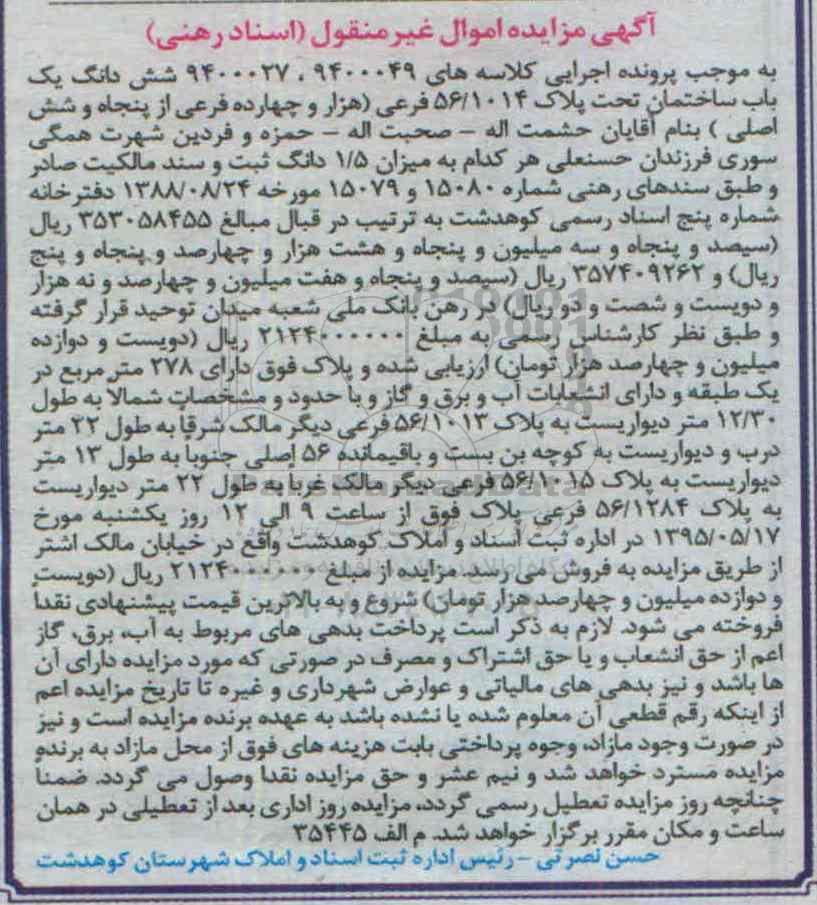 آگهی مزایده اموال غیر منقول (اسناد رهنی)
به موجب پرونده اجرایی کلاسه های ۹۴۰۰۰۴۹ ، ۹۴۰۰۰۲۷ شش دانگ یک
باب ساختمان تحت پلاک ۵۶/۱۰۱۴ فرعی (هزار و چهارده فرعی از پنجاه و شش
اصلی ) بنام آقایان حشمت اله – صحبت اله – حمزه و فردین شهرت همگی
سوری فرزندان حسنعلی هر کدام به میزان ۱/۵ دانگ ثبت و سند مالکیت صادر
و طبق سندهای رهنی شماره ۱۵۰۸۰ و ۱۵۰۷۹ مورخه ۱۳۸۸/۰۸/۲۴ دفترخانه
شماره پنج اسناد رسمی کوهدشت به ترتیب در قبال مبالغ ۳۵۳۰۵۸۴۵۵ ریال
(سیصد و پنجاه و سه میلیون و پنجاه و هشت هزار و چهارصد و پنجاه و پنج
ریال) و ۳۵۷۴۰۹۲۶۲ ریال (سیصد و پنجاه و هفت میلیون و چهارصد و نه هزار
و دویست و شصت و دو ریال) در رهن بانک ملی شعبه میدان توحید قرار گرفته
و طبق نظر کارشناس رسمی به مبلغ ۲۱۲۴۰۰۰۰۰۰ ریال (دویست و دوازده
میلیون و چهارصد هزار تومان) ارزیابی شده و پلاک فوق دارای ۲۷۸ متر مربع در
یک طبقه و دارای انشعابات آب و برق و گاز و با حدود و مشخصات شمالا به طول
۱۲/۳۰ متر دیواریست به پلاک ۵۶/۱۰۱۳ فرعی دیگر مالک شرقا به طول ۲۲ متر
درب و دیواریست به کوچه بن بست و باقیمانده ۵۶ اصلی جنوبا به طول ۱۳ متر
دیواریست به پلاک ۵۶/۱۰۱۵ فرعی دیگر مالک غربا به طول ۲۲ متر دیواریست
به پلاک ۵۶/۱۲۸۴ فرعی پلاک فوق از ساعت ۹ الی ۱۲ روز یکشنبه مورخ
۱۳۹۵/۰۵/۱۷ در اداره ثبت اسناد و املاک کوهدشت واقع در خیابان مالک اشتر
از طریق مزایده به فروش می رسد. مزایده از مبلغ ۲۱۲۴۰۰۰۰۰۰ ریال (دویست
و دوازده میلیون و چهارصد هزار تومان) شروع و به بالاترین قیمت پیشنهادی نقدا
فروخته می شود. لازم به ذکر است پرداخت بدهی های مربوط به آب، برق، گاز
اعم از حق انشعاب و یا حق اشتراک و مصرف در صورتی که مورد مزایده دارای آن
ها باشد و نیز بدهی های مالیاتی و عوارض شهرداری و غیره تا تاریخ مزایده اعم
از اینکه رقم قطعی آن معلوم شده یا نشده باشد به عهده برنده مزایده است و نیز
در صورت وجود مازاد، وجوه پرداختی بابت هزینه های فوق از محل مازاد به برنده
مزایده مسترد خواهد شد و نیم عشر و حق مزایده نقدا وصول می گردد. ضمناً
چنانچه روز مزایده تعطیل رسمی گردد، مزایده روز اداری بعد از تعطیلی در همان
ساعت و مکان مقرر برگزار خواهد شد. م الف ۳۵۴۴۵
حسن نصرتی – رئیس اداره ثبت اسناد و املاک شهرستان کوهدشت